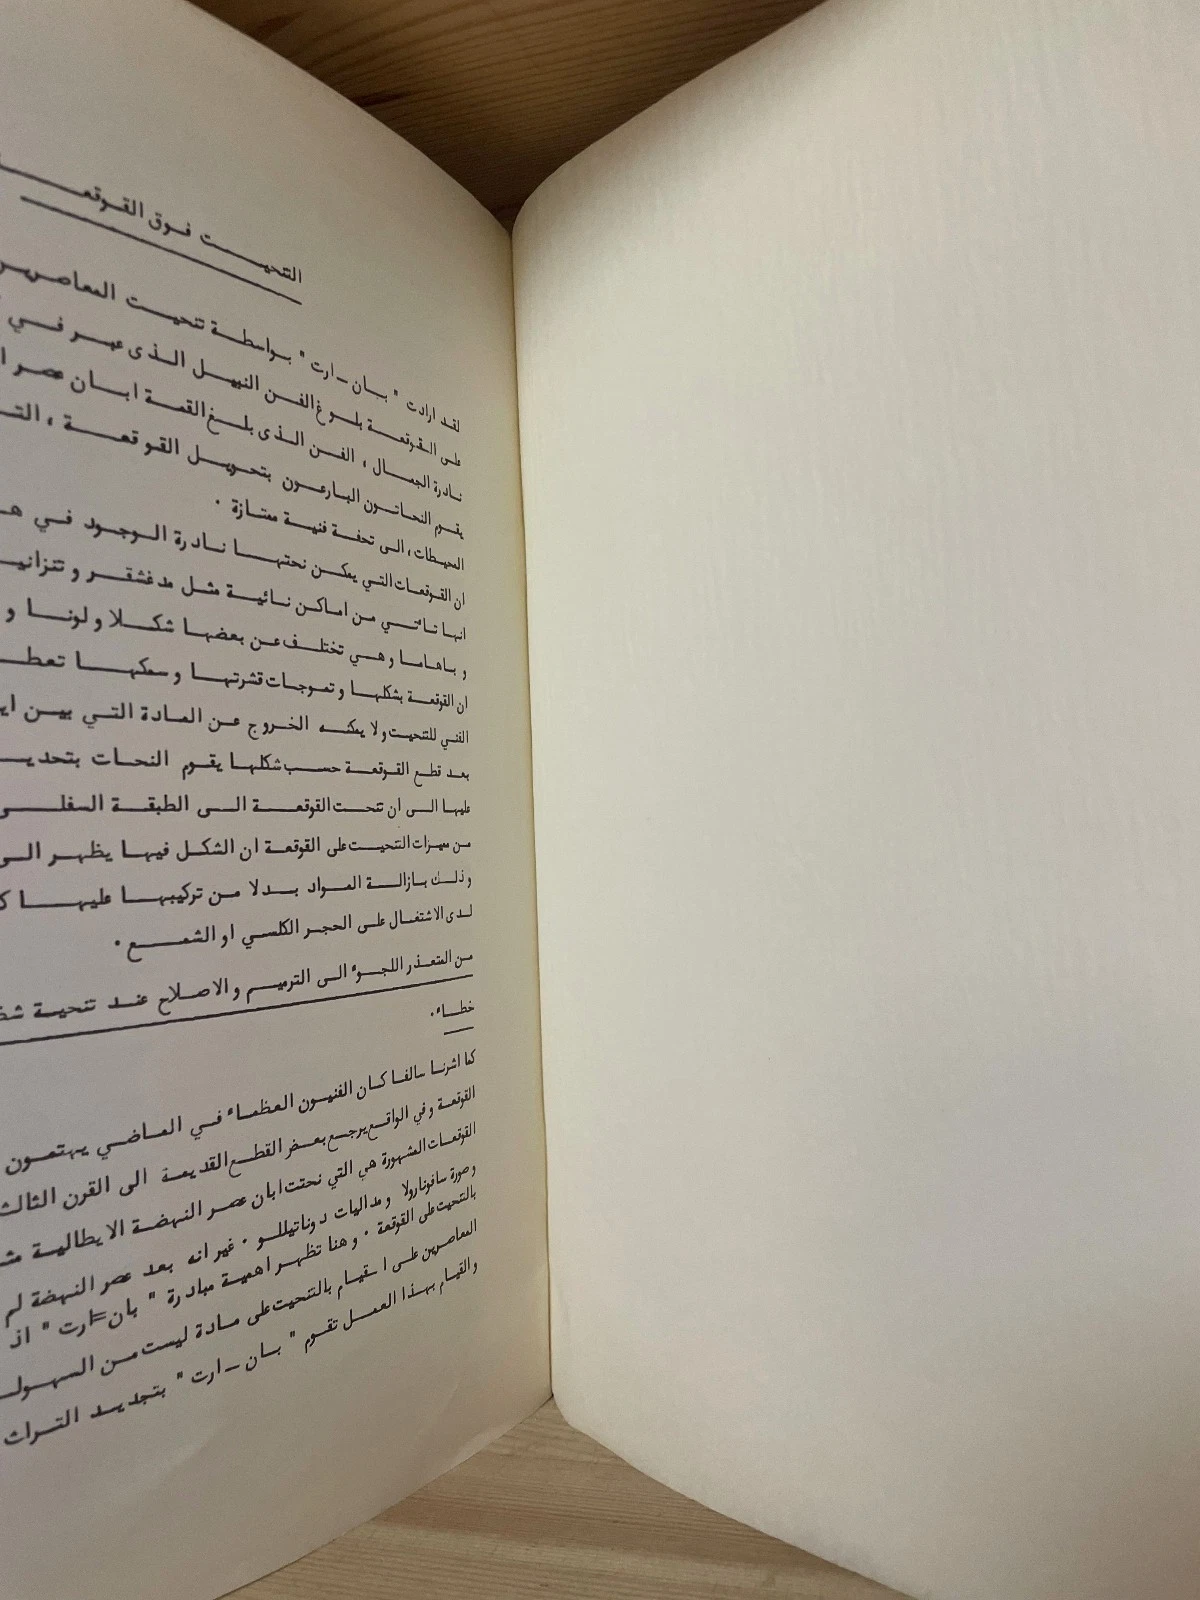 التحيت فوق القوقعـ
لقد ارادت " بان ــ ارت " بواسطة تنحيت المعاصرين
على القوقعة بلوغ الفن النبيل الذى عبر في
نادرة الجمال ، الفن الذى بلغ القمة ابان عصر ا
يقوم النحاتون البارعون بتحويل القوقعة ، التـ
المحيطات ، الى تحفة فنية ممتازة .
ان القوقعات التي يمكن نحتها نادرة الوجود في هـ
انها تأتي من اماكن نائية مثل مدغشقر و تنزانيـ
و باهاما وهي تختلف عن بعضها شكلا و لونا و
ان القوقعة بشكلها و تموجات قشرتها و سمكها تعطـ
الفني للتنحيت ولا يمكنه الخروج عن المادة التي بين ايـ
بعد قطع القوقعة حسب شكلها يقوم النحات بتحديـ
عليها الى ان تنحت القوقعة الى الطبقة السفلى
من ميزات التنحيت على القوقعة ان الشكل فيها يظهر الى
وذلك بازالة المواد بدلا من تركيبها عليها كـ
لدى الاشتغال على الحجر الكلسي او الشمع .
من المتعذر اللجوء الى الترميم والاصلاح عند تنحية شظـ
خطاء.
كما اشرنا سالفا كان الفنيون العظماء في الماضي يهتمون
القوقعة وفي الواقع يرجع بعض القطع القديمة الى القرن الثالث
القوقعات المشهورة هي التي نحتت ابان عصر النهضة الايطالية مثـ
وصورة سافونارولا ومداليات دوناتيللو . غير انه بعد عصر النهضة لم
بالتنحيت على القوقعة . وهنا تظهر اهمية مبادرة " بان=ارت " اذ
المعاصرين على القيام بالتنحيت على مادة ليست من السهولـ
والقيام بهذا العمل تقوم " بان ــ ارت " بتجديد التراث